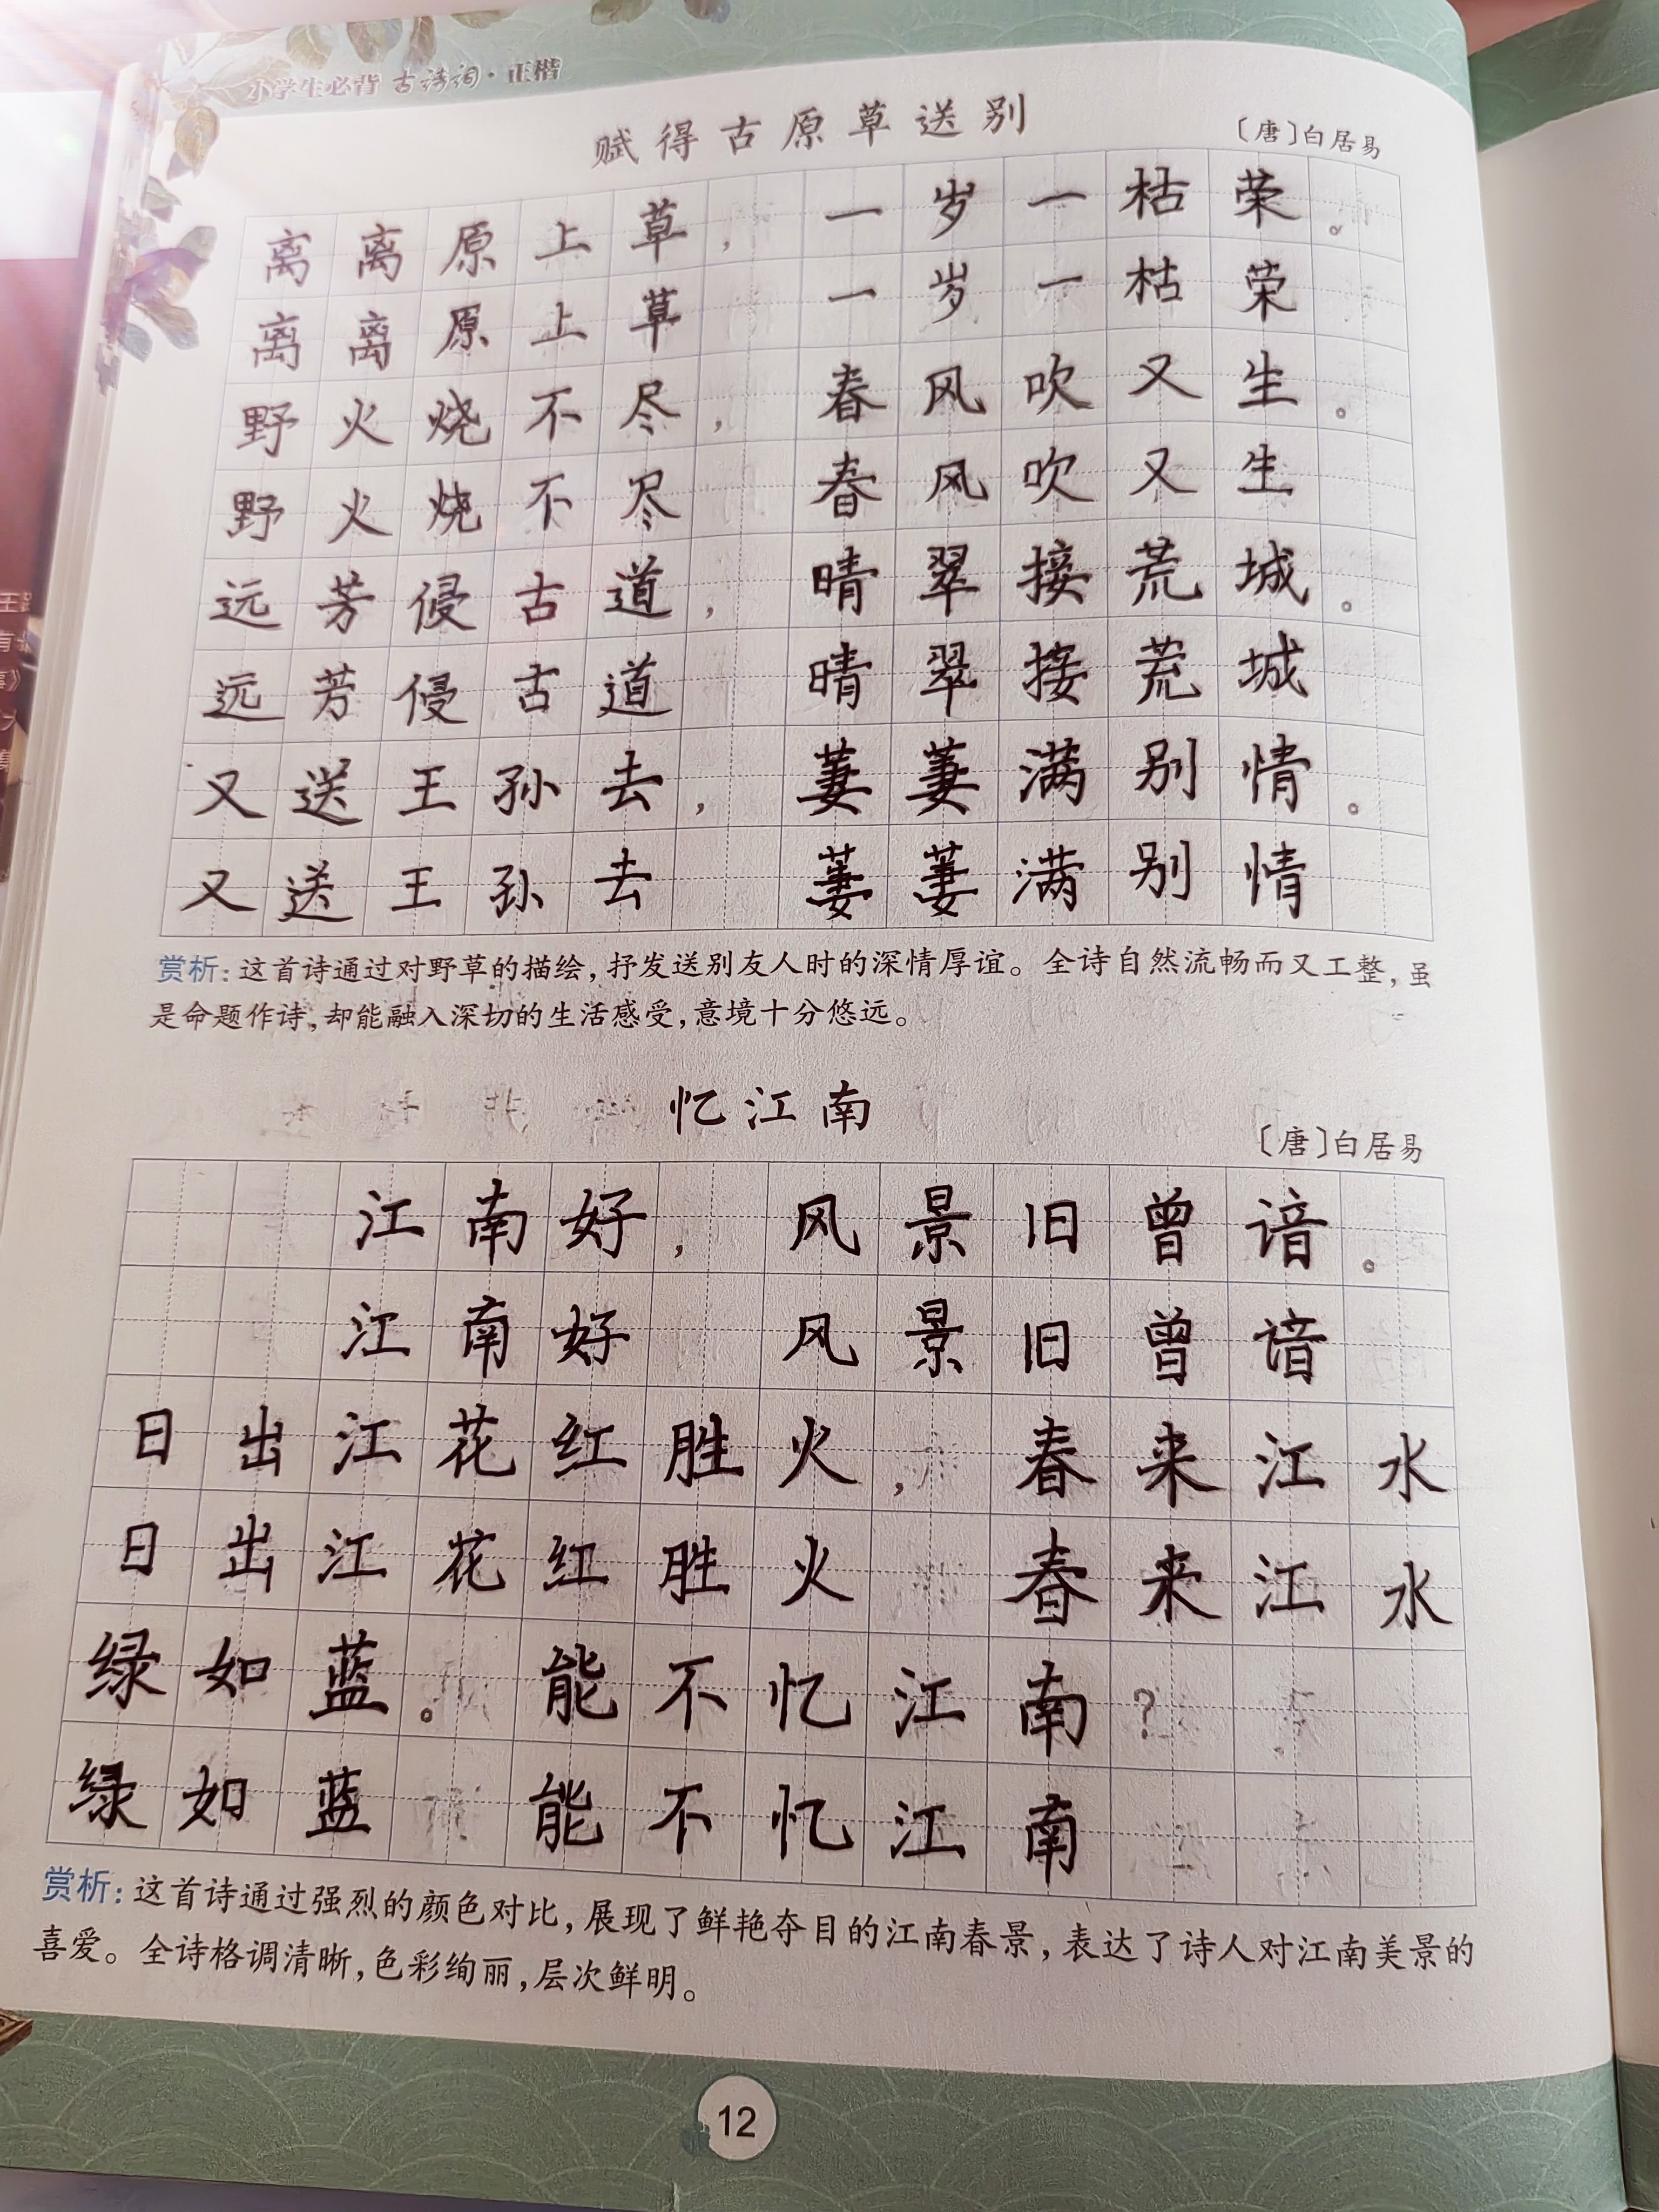 小学生必背古诗词·正楷
赋得古原草送别
〔唐〕白居易
离离原上草，一岁一枯荣。
离离原上草 一岁一枯荣
野火烧不尽，春风吹又生。
野火烧不尽 春风吹又生
远芳侵古道，晴翠接荒城。
远芳侵古道 晴翠接荒城
又送王孙去，萋萋满别情。
又送王孙去 萋萋满别情
赏析：这首诗通过对野草的描绘，抒发送别友人时的深情厚谊。全诗自然流畅而又工整，虽
是命题作诗，却能融入深切的生活感受，意境十分悠远。
忆江南
〔唐〕白居易
江南好，风景旧曾谙。
江南好 风景旧曾谙
日出江花红胜火，春来江水
日出江花红胜火 春来江水
绿如蓝。能不忆江南？
绿如蓝 能不忆江南
赏析：这首诗通过强烈的颜色对比，展现了鲜艳夺目的江南春景，表达了诗人对江南美景的
喜爱。全诗格调清晰，色彩绚丽，层次鲜明。
12